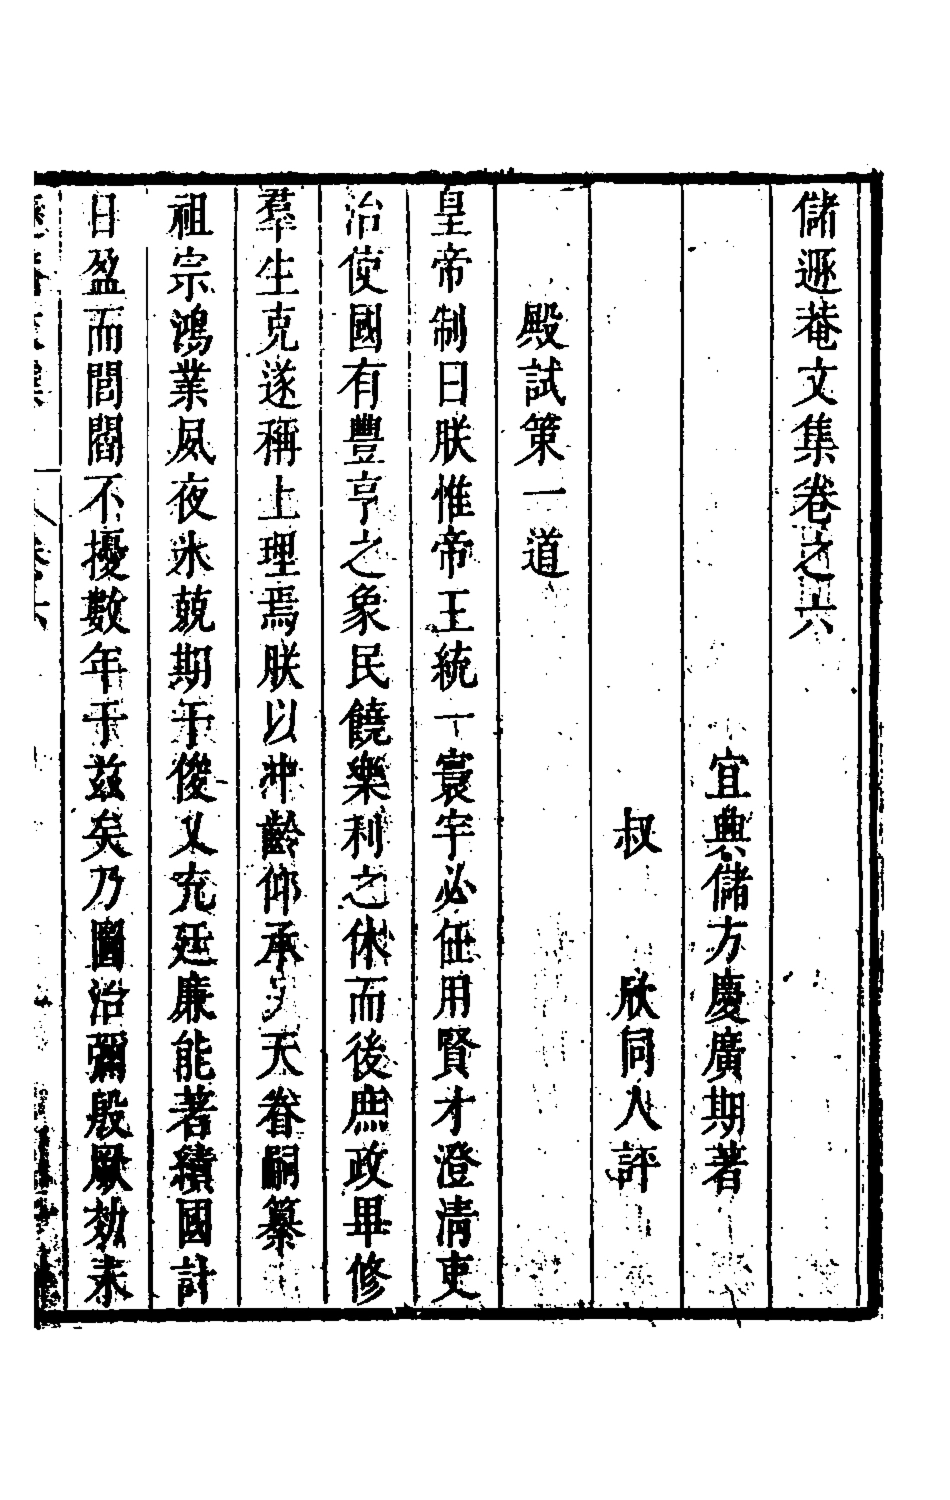 儲遯菴文集卷之六
宜興儲方慶廣期著
叔　欣同人評
殿試策一道
皇帝制曰朕惟帝王統一寰宇必任用賢才澄清吏
治使國有豐亨之象民饒樂利之休而後庶政畢修
羣生克遂稱上理焉朕以冲齡仰承天眷嗣纂
祖宗鴻業夙夜氷兢期于俊乂充廷廉能著績國計
日盈而閭閻不擾數年于兹矣乃圖治彌殷厥効未